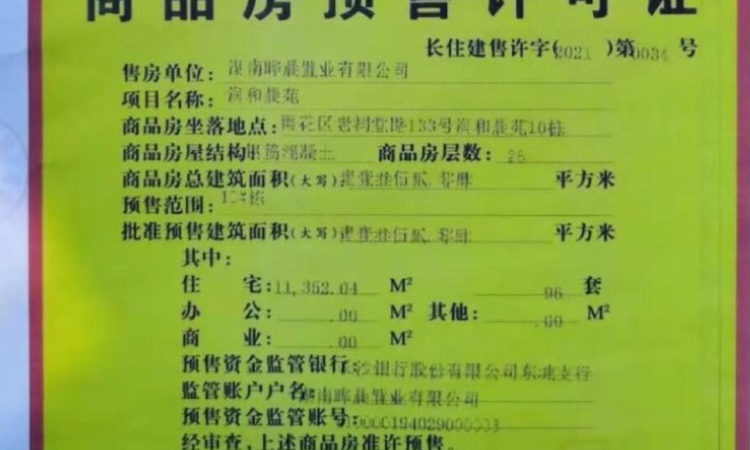 商品房预售许可证
长住建售许字(2021)第0034号
售房单位：湖南晔晨置业有限公司
项目名称：润和晨苑
商品房坐落地点：雨花区老祠堂路133号润和晨苑10栋
商品房屋结构 钢筋混凝土 商品房层数：25
商品房总建筑面积(大写) 平方米
预售范围： 栋
批准预售建筑面积(大写) 平方米
其中：
住 宅：11,352.04 M² 96 套
办 公： .00 M² 其他： .00 M²
商 业： .00 M²
预售资金监管银行： 银行股份有限公司东 支行
监管账户户名： 湖南晔晨置业有限公司
预售资金监管账号：
经审查，上述商品房准许预售。